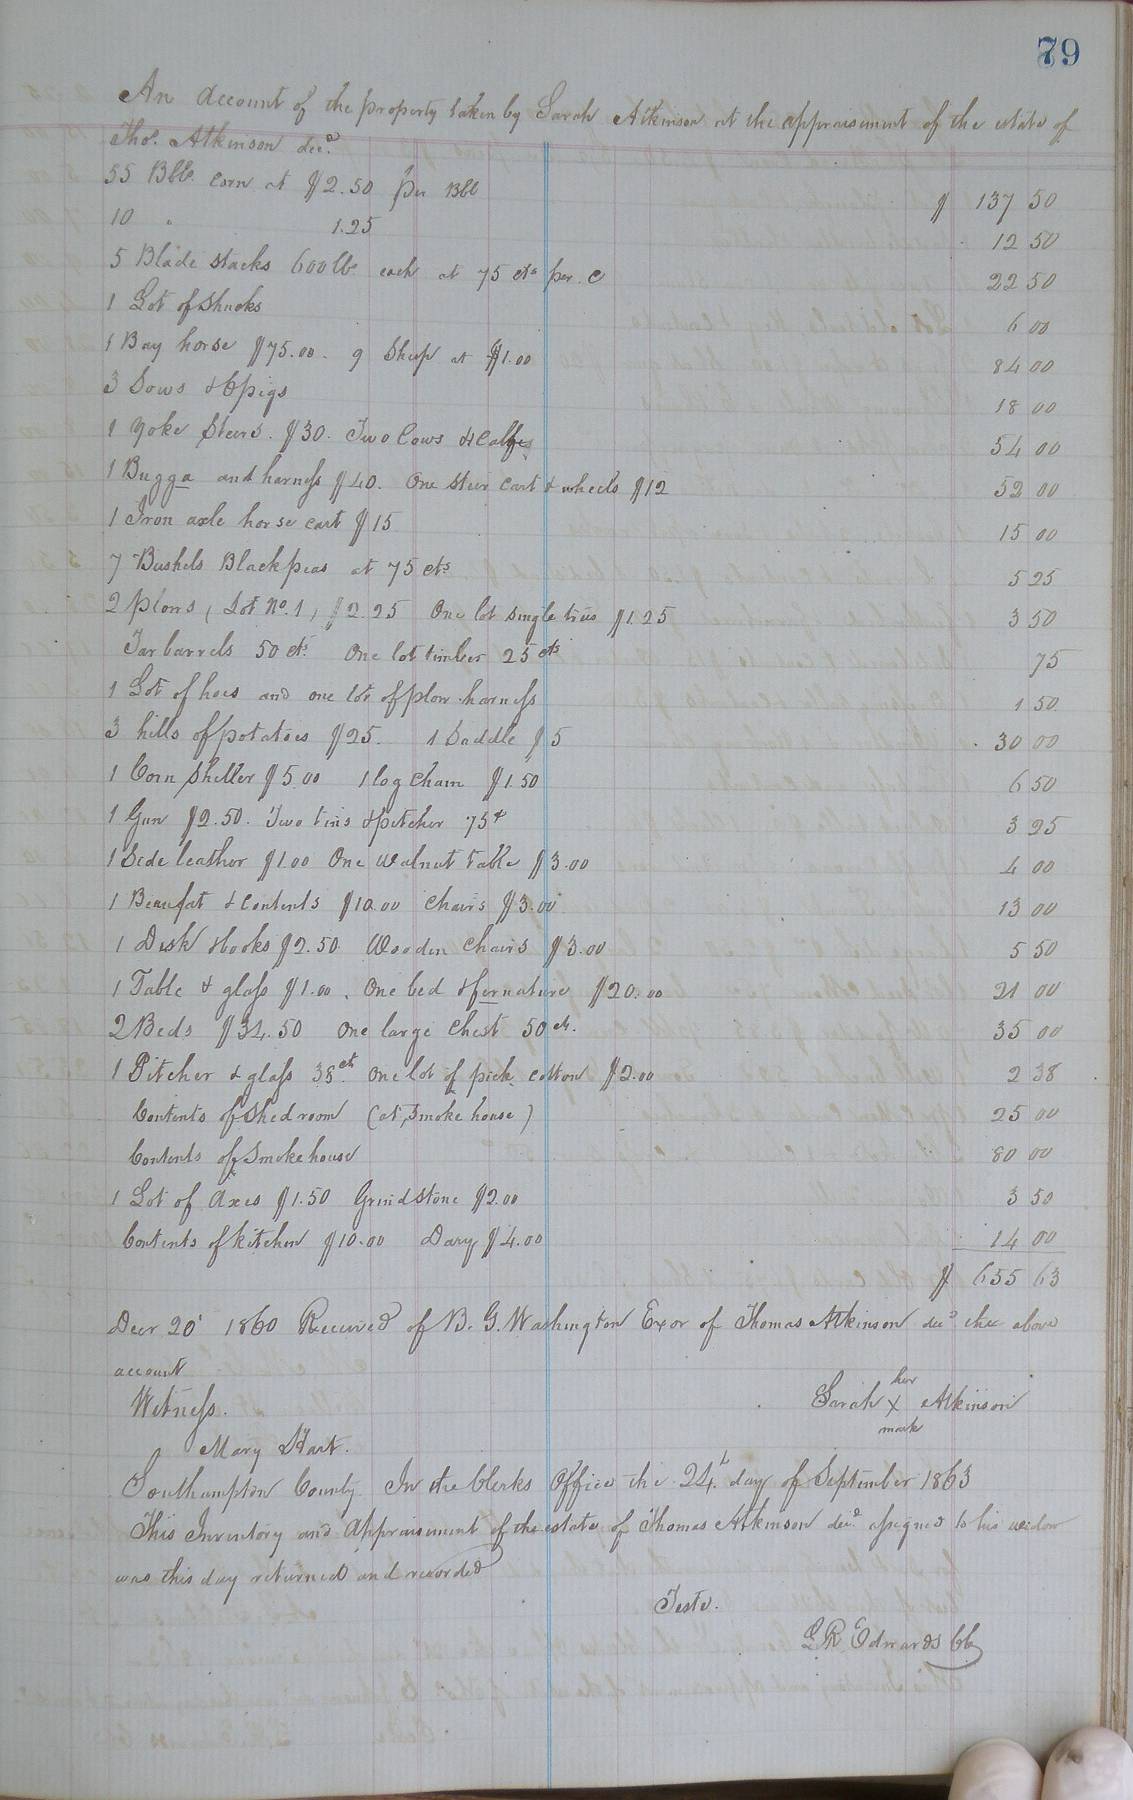 79
An account of the property taken by Sarah Atkinson at the appraisement of the estate of
Thos. Atkinson decd.
55 Bbls. corn at $2.50 per Bbl $ 137 50
10 " 1.25 12 50
5 Blade stacks 600 lbs each at 75 cts per. C 22 50
1 Lot of shucks 6 00
1 Bay horse $75.00. 9 Sheep at $1.00 84 00
3 Sows & 6 pigs 18 00
1 Yoke Steers. $30. Two Cows & Calfes 54 00
1 Bugga and harness $40. One steer cart & wheels $12 52 00
1 Iron axle horse cart $15 15 00
7 Bushels Blackpeas at 75 cts 5 25
2 plows, Lot No. 1, $2.25 One lot single trees $1.25 3 50
Tar barrels 50 cts. One lot timber 25 cts 75
1 Lot of hoes and one lot of plow harness 1 50
3 hills of potatoes $25. 1 Saddle $5 30 00
1 Corn Sheller $5.00 1 log chain $1.50 6 50
1 Gun $2.50. Two tins & pitcher 75 3 25
1 Side leather $1.00 One walnut table $3.00 4 00
1 Beaufat & contents $10.00 Chairs $3.00 13 00
1 Desk & books $2.50 Wooden Chairs $3.00 5 50
1 Table & glass $1.00. One bed & fernature $20.00 21 00
2 Beds $34.50 One large Chest 50 ct. 35 00
1 Pitcher & glass 38 ct. One lot of pick. cotton $2.00 2 38
Contents of Shed room (at Smoke house) 25 00
Contents of Smoke house 80 00
1 Lot of Axes $1.50 Grindstone $2.00 3 50
Contents of kitchen $10.00 Dary $4.00 14 00
$ 655 63
Decr 20 1860 Received of B. G. Washington Exor of Thomas Atkinson decd the above
account
Witness. Sarah her X mark Atkinson
Mary Hart.
Southampton County. In the Clerks Office the 24th day of September 1863
This Inventory and Appraisement of the estate of Thomas Atkinson decd. assigned to his widow
was this day returned and recorded
Teste.
L R Edwards Clk